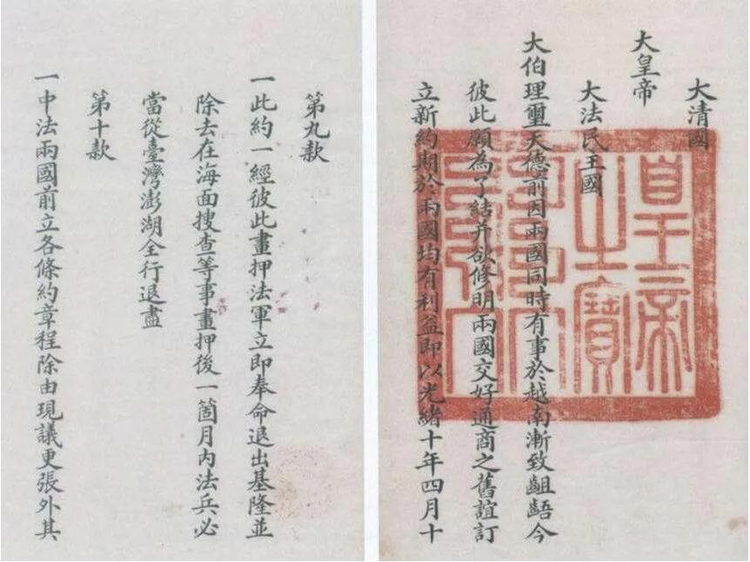 大清國
大皇帝
大法民主國
大伯理璽天德前因兩國同時有事於越南漸致齟齬今
彼此願為了結並欲修明兩國交好通商之舊誼訂
立新約期於兩國均有利益即以光緒十年四月十
皇帝之寶
第九款
一此約一經彼此畫押法軍立即奉命退出基隆並
除去在海面搜查等事畫押後一箇月內法兵必
當從臺灣澎湖全行退盡
第十款
一中法兩國前立各條約章程除由現議更張外其